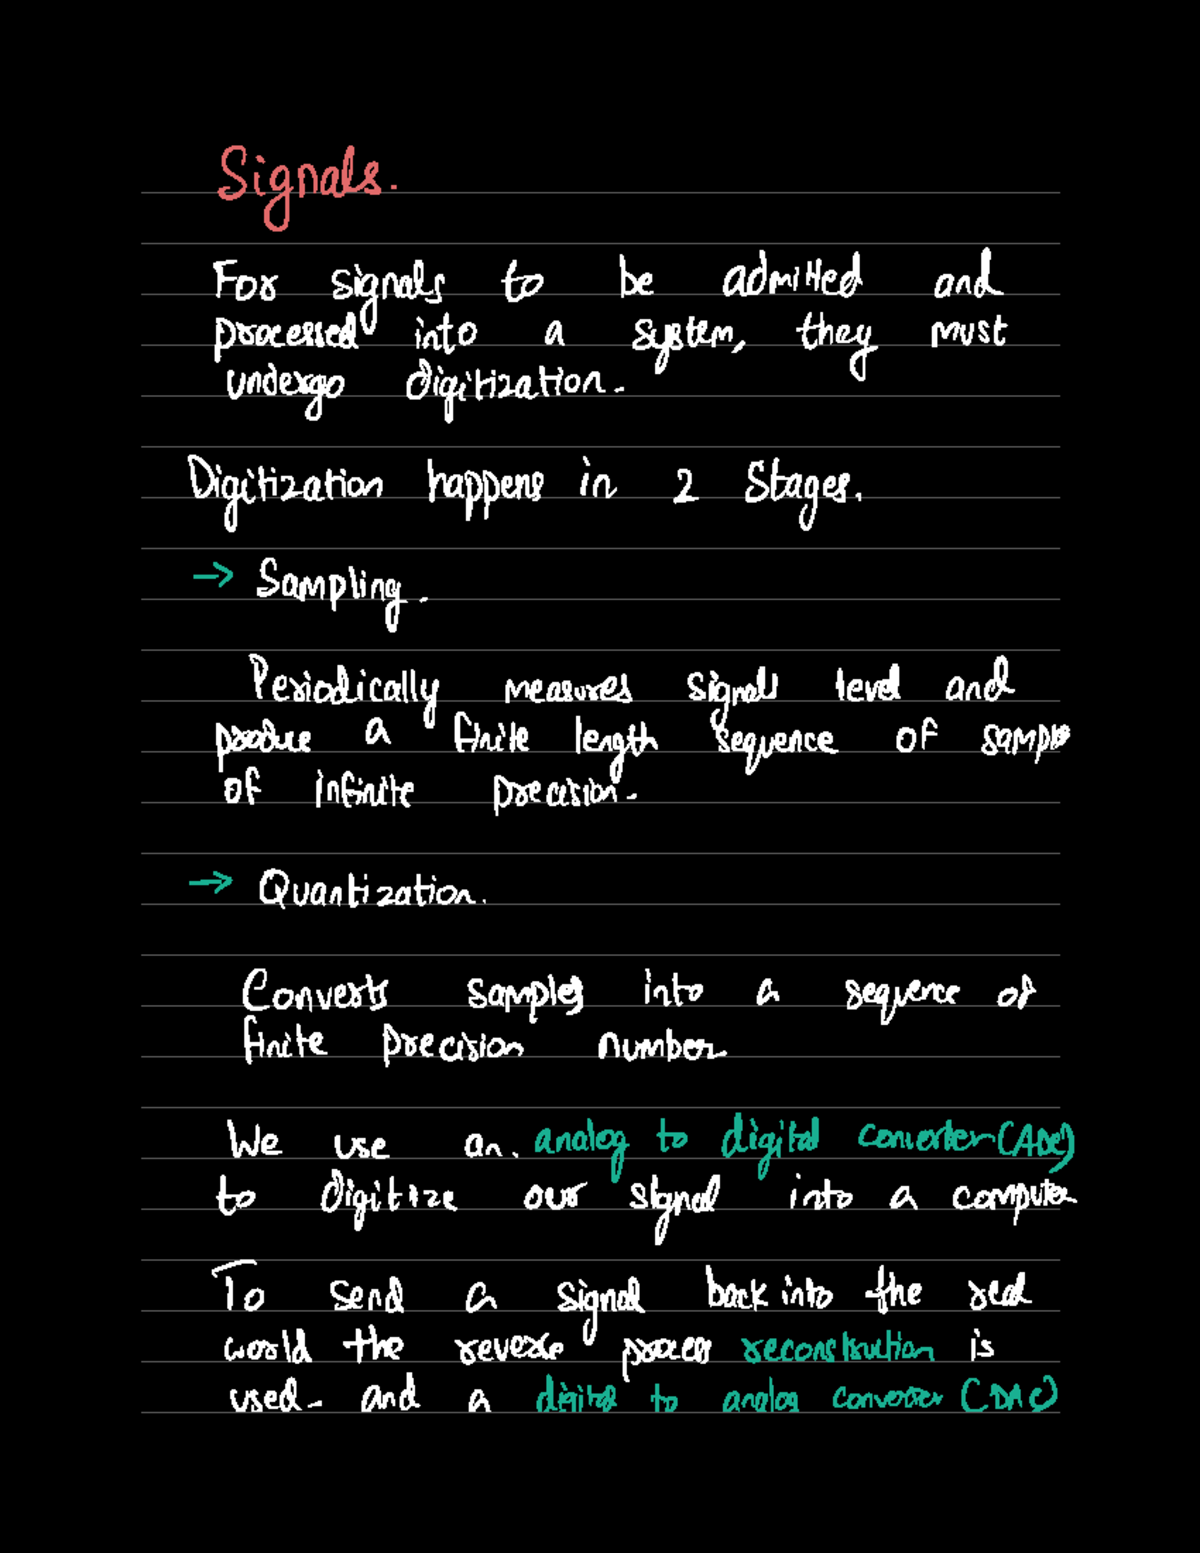 Signals.
For signals to be admitted and
processed into a system, they must
undergo digitization.
Digitization happens in 2 Stages.
→ Sampling.
Periodically measures signals level and
produce a finite length sequence of sample
of infinite precision.
→ Quantization.
Converts samples into a sequence of
finite precision number
We use an. analog to digital converter (ADC)
to digitize our signal into a computer
To send a signal back into the real
world the reverse process reconstruction is
used. and a digital to analog converter (DAC)